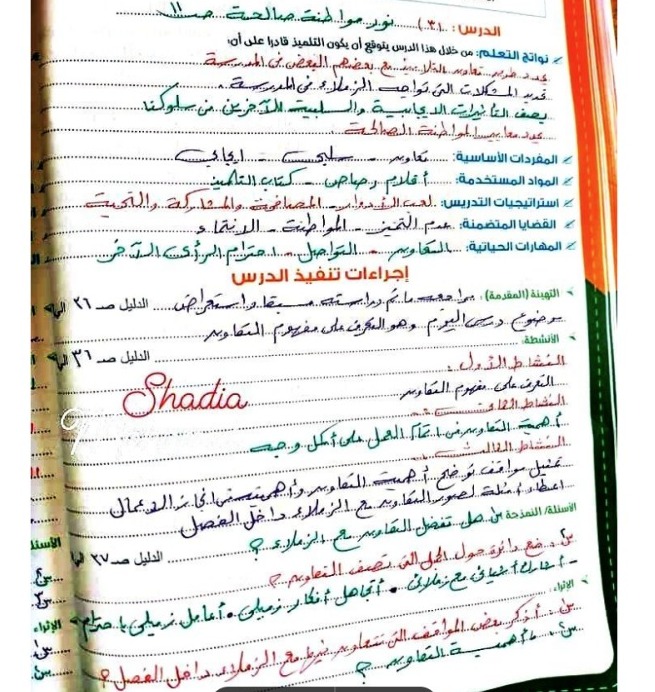 الدرس: (٣١) نور مواطنة صالحة صـ ١١
نواتج التعلم: من خلال هذا الدرس يتوقع أن يكون التلميذ قادرا على أن:
يحدد طرق تعاون التلاميذ مع بعضهم البعض فى المدرسة
تحديد المشكلات التى تواجه الزملاء فى المدرسة.
يصف التأثيرات الايجابية والسلبية للآخرين من سلوكنا
يحدد معايير المواطنة الصالحة.
المفردات الأساسية: تعاون - سلبى - ايجابى
المواد المستخدمة: أقلام رصاص - كتاب التلميذ
استراتيجيات التدريس: لعب الأدوار - المصافحة والمشاركة والتحية
القضايا المتضمنة: عدم التميز - المواطنة - الانتماء
المهارات الحياتية: التعاون - التواصل - احترام الرأى الآخر
إجراءات تنفيذ الدرس
التهيئة (المقدمة): مراجعة ما تم دراسته مسبقا واستعراض الدليل صـ ٣٦
موضوع درس اليوم وهو التعرف على مفهوم التعاون
الأنشطة: الدليل صـ ٣٦
النشاط الأول:
التعرف على مفهوم التعاون
Shadia
النشاط الثانى:
أهمية التعاون فى اتمام العمل على أكمل وجه
النشاط الثالث:
تمثيل مواقف توضح أهمية التعاون وأهميته فى انجاز الاعمال
اعطاء أمثلة لصور التعاون مع الزملاء داخل الفصل
الأسئلة/ النمذجة س١ هل تفضل التعاون مع الزملاء؟ الدليل صـ ٣٧
س٢. ضع دائرة حول الجمل التى تصف التعاون؟
- أشارك أشيائى مع زملائى. أتجاهل أفكار زميلى. أعامل زميلى باحترام
الإثراء:
س١. أذكر بعض المواقف التى تتعاون فيها مع الزملاء داخل الفصل؟
س٢. ما أهمية التعاون؟